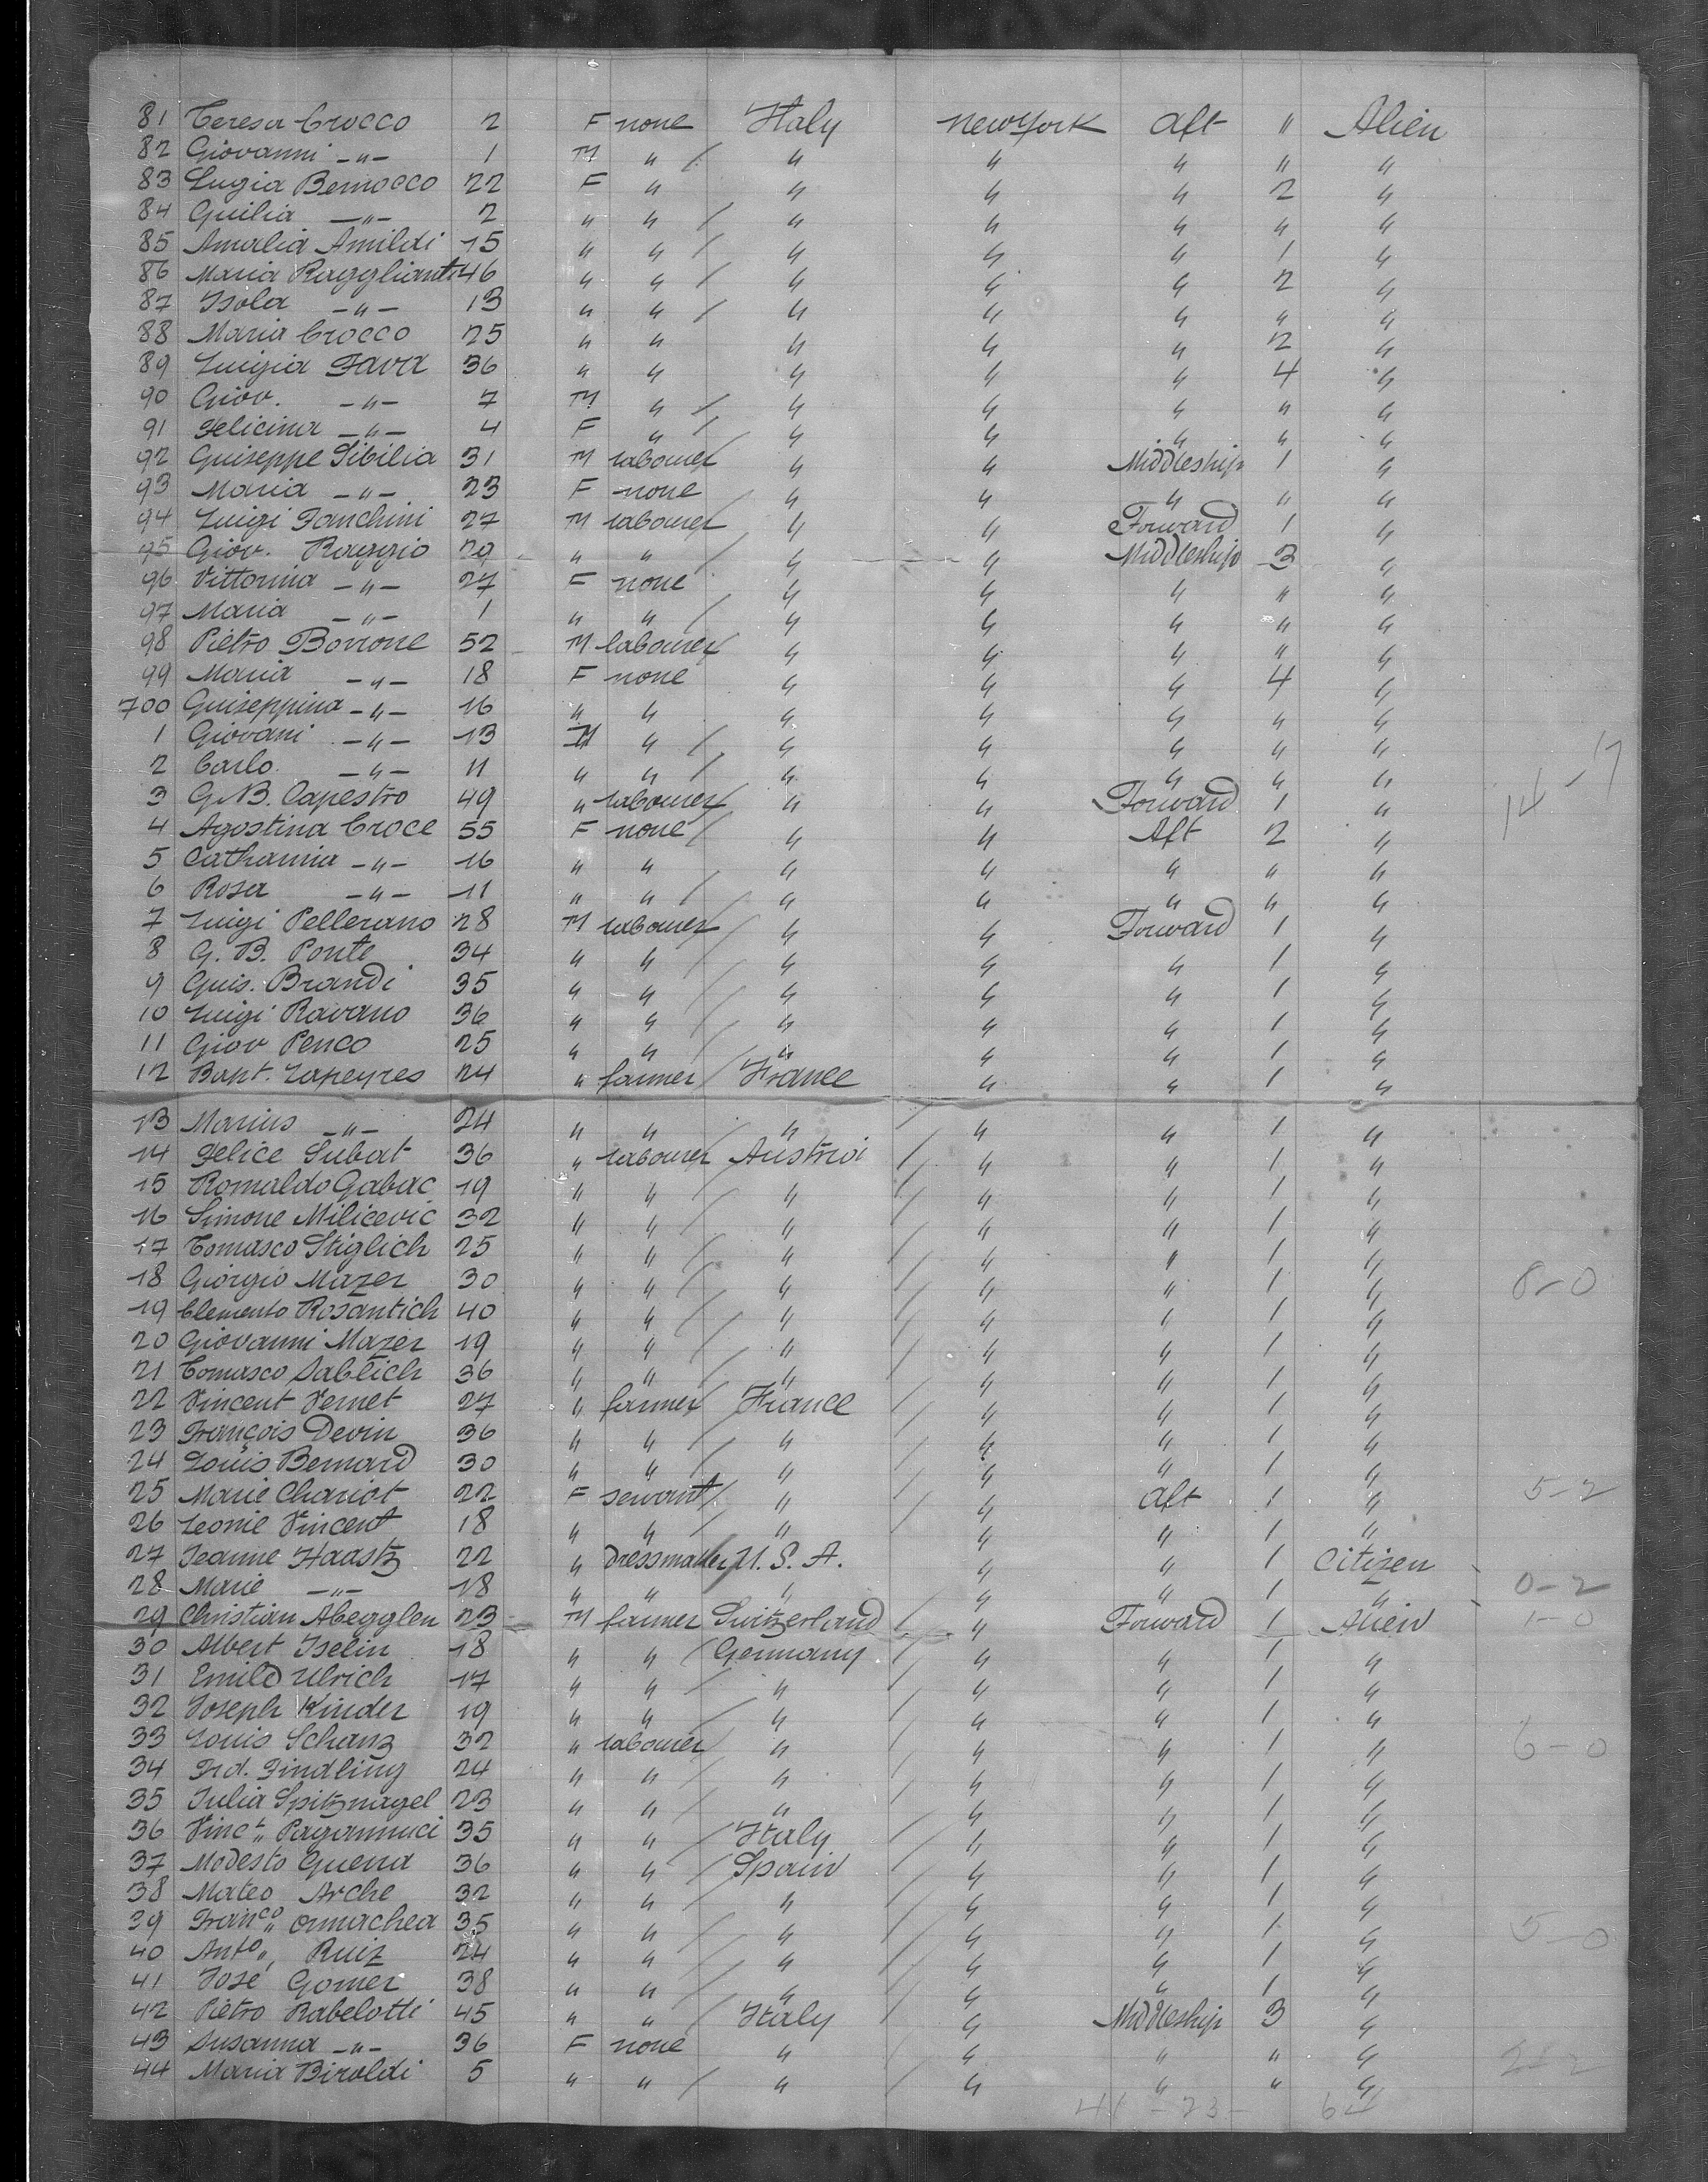 81 Teresa Crocco 2 F none Italy New York Aft " Alien
82 Giovanni -"- 1 M " / " " " " "
83 Lugia Bernocco 22 F " " " " 2 "
84 Guilia -"- 2 " " / " " " " "
85 Amalia Amildi 15 " " / " " " 1 "
86 Maria Raggliant 46 " " / " " " 2 "
87 Isola -"- 13 " " / " " " " "
88 Maria Crocco 25 " " " " " 2 "
89 Luigia Fava 36 " " " " " 4 "
90 Giov. -"- 7 M " / " " " " "
91 Felicina -"- 4 F " / " " " " "
92 Guiseppe Sibilia 31 M labourer " " Middleship 1 "
93 Maria -"- 23 F none " " " " "
94 Luigi Fanchini 27 M labourer / " " Forward 1 "
95 Giov. Raggio 29 " " / " " Middleship 3 "
96 Vittorina -"- 27 F none " " " " "
97 Maria -"- 1 " " / " " " " "
98 Pietro Borrone 52 M labourer / " " " " "
99 Maria -"- 18 F none " " " 4 "
700 Guiseppina -"- 16 " " " " " " "
1 Giovani -"- 13 M " / " " " " "
2 Carlo -"- 11 " " / " " " " "
3 G.B. Capestro 49 " labourer / " " Forward 1 "
4 Agostina Croce 55 F none / " " Aft 2 "
5 Catharina -"- 16 " " " " " " "
6 Rosa -"- 11 " " / " " " " "
7 Luigi Pellerano 28 M labourer / " " Forward 1 "
8 G. B. Ponte 34 " " / " " " 1 "
9 Guis. Brandi 35 " " / " " " 1 "
10 Luigi Ravano 36 " " / " " " 1 "
11 Giov Penco 25 " " / " " " 1 "
12 Bapt. Lapeyres 24 " farmer / France " " 1 "
13 Marius -"- 24 " " / " / " " 1 "
14 Felice Subat 36 " labourer Austria / " " 1 "
15 Romaldo Gabac 19 " " / " / " " 1 "
16 Simone Milicevic 32 " " / " / " " 1 "
17 Tomasco Stiglich 25 " " / " / " " 1 "
18 Giorgio Mazer 30 " " / " / " " 1 " 8-0
19 Clemento Rosantich 40 " " / " / " " 1 "
20 Giovanni Mazer 19 " " / " / " " 1 "
21 Tomasco Sablich 36 " " / " / " " 1 "
22 Vincent Vernet 27 " farmer / France / " " 1 "
23 François Devin 36 " " / " / " " 1 "
24 Louis Bernard 30 " " / " / " " 1 "
25 Marie Chariot 22 F servant / " / " Aft 1 " 5-2
26 Leonie Vincent 18 " " / " / " " 1 "
27 Jeanne Haastz 22 " Dressmaker U. S. A. " " 1 Citizen
28 Marie -"- 18 " " / " " " 1 " 0-2
29 Christian Abegglen 23 M farmer Switzerland / " Forward 1 Alien 1-0
30 Albert Iselin 18 " " / Germany / " " 1 "
31 Emild Ulrich 17 " " / " / " " 1 "
32 Joseph Kinder 19 " " / " / " " 1 "
33 Louis Schanz 32 " labourer / " / " " 1 " 6-0
34 Frd. Findling 24 " " / " / " " 1 "
35 Julia Spitznagel 23 " " / " / " " 1 "
36 Vinct. Pagannuci 35 " " / Italy / " " 1 "
37 Modesto Guerra 36 " " / Spain / " " 1 "
38 Mateo Arche 32 " " / " / " " 1 "
39 Franco. Ormachea 35 " " / " / " " 1 " 5-0
40 Anto. Ruiz 24 " " / " / " " 1 "
41 José Gomer 38 " " / " / " " 1 "
42 Pietro Rabelotti 45 " " / Italy / " Middleship 3 "
43 Susanna -"- 36 F none " " " " "
44 Maria Biroldi 5 " " / " / " " " " 2-2
41 - 23 - 64